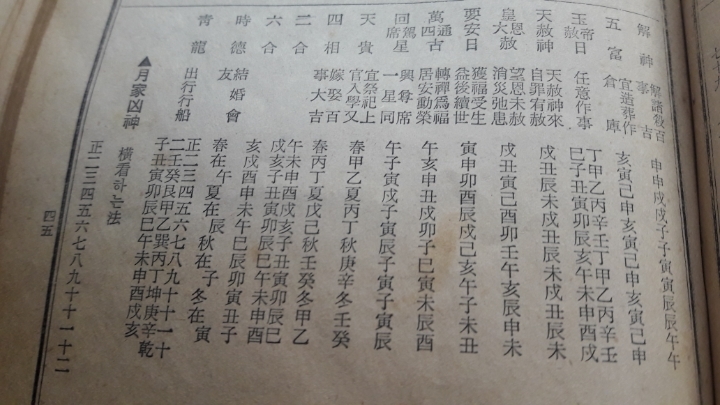 解神 解諸殺百事吉 申申戌戌子子寅寅辰辰午午
五富 宜造葬作倉庫 亥寅巳申亥寅巳申亥寅巳申
玉帝赦日 任意作事 丁甲乙丙辛壬丁甲乙丙辛壬
巳子丑寅卯辰亥午未申酉戌
天赦神 天赦神來自罪有赦 戌丑辰未戌丑辰未戌丑辰未
皇恩大赦 望恩未赦消災弛患 戌丑寅巳酉卯壬午亥辰申未
要安日 獲福受生益後續世 寅申卯酉辰戌巳亥午子未丑
萬通四古 轉禪爲福居安動榮 午亥申丑戌卯子巳寅未辰酉
回駕席星 興尊席一星同 午子寅戌子寅辰子寅子寅辰
天貴 宜祭祀上官入學又 春甲乙夏丙丁秋庚辛冬壬癸
四相 嫁娶百事大吉 春丙丁夏戊己秋壬癸冬甲乙
二合 午未申酉戌亥子丑寅卯辰巳
戌亥子丑寅卯辰巳午未申酉
六合 亥戌酉申未午巳辰卯寅丑子
時德 結婚會友 春在午 夏在辰 秋在子 冬在寅
靑龍 出行行船 正二三四五六七八九十十一十二
壬癸艮甲乙巽丙丁坤庚辛乾
子丑寅卯辰巳午未申酉戌亥
▲月家凶神 橫看하는法
正二三四五六七八九十十一十二
四五